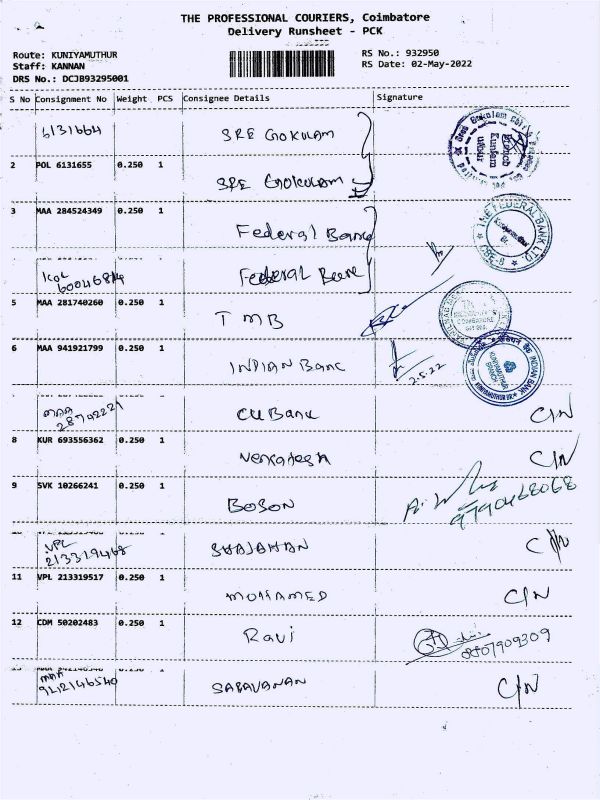 THE PROFESSIONAL COURIERS, Coimbatore
Delivery Runsheet - PCK
Route: KUNIYAMUTHUR
Staff: KANNAN
DRS No.: DCJB93295001
RS No.: 932950
RS Date: 02-May-2022
S No Consignment No Weight PCS Consignee Details Signature
6131664 SRE GOKULAM
2 POL 6131655 0.250 1
SRE GOKULAM
3 MAA 284524349 0.250 1
Federal Bank
THE FEDERAL BANK LTD.
KOL
Federal Bank
5 MAA 281740260 0.250 1
TMB
6 MAA 941921799 0.250 1
INDIAN Banc
2.5.22
INDIAN BANK
KUNIYAMUTHUR
BRANCH
MAA
28742221 CUBank C/N
8 KUR 693556362 0.250 1
Venkatesh C/N
9 SVK 10266241 0.250 1
BOSON
9790468068
VPL
213319468 SHAJAHAN C/N
11 VPL 213319517 0.250 1
MOHAMED C/N
12 CDM 50202483 0.250 1
Ravi
MAA
SARAVANAN C/N